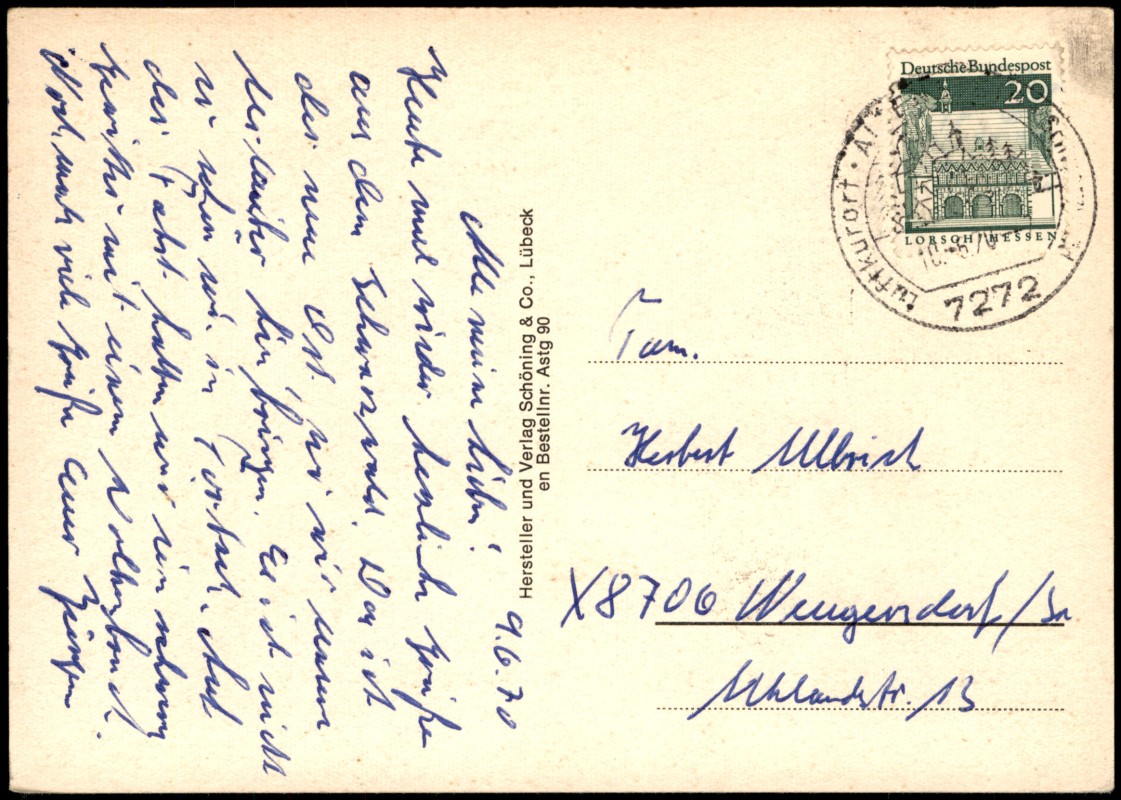 9.6.70
Alle meine Lieben!
Heute mal wieder herzliche Grüße
aus dem Schwarzwald. Das ist
der neue Ort wo wir unsere
hin bringen. Es ist nicht
so schön wie in Hat
der Fahrt hatten wir ein schweres
Gewitter mit einem Wolkenbruch.
Noch mals viele Grüße Euer Jürgen
Hersteller und Verlag Schöning & Co., Lübeck
en Bestellnr. Astg 90
Deutsche Bundespost
20
LORSCH/HESSEN
Luftkurort
7272
Fam.
Herbert Ullrich
X8706 Neugersdorf/Sa
Uhlandstr. 13